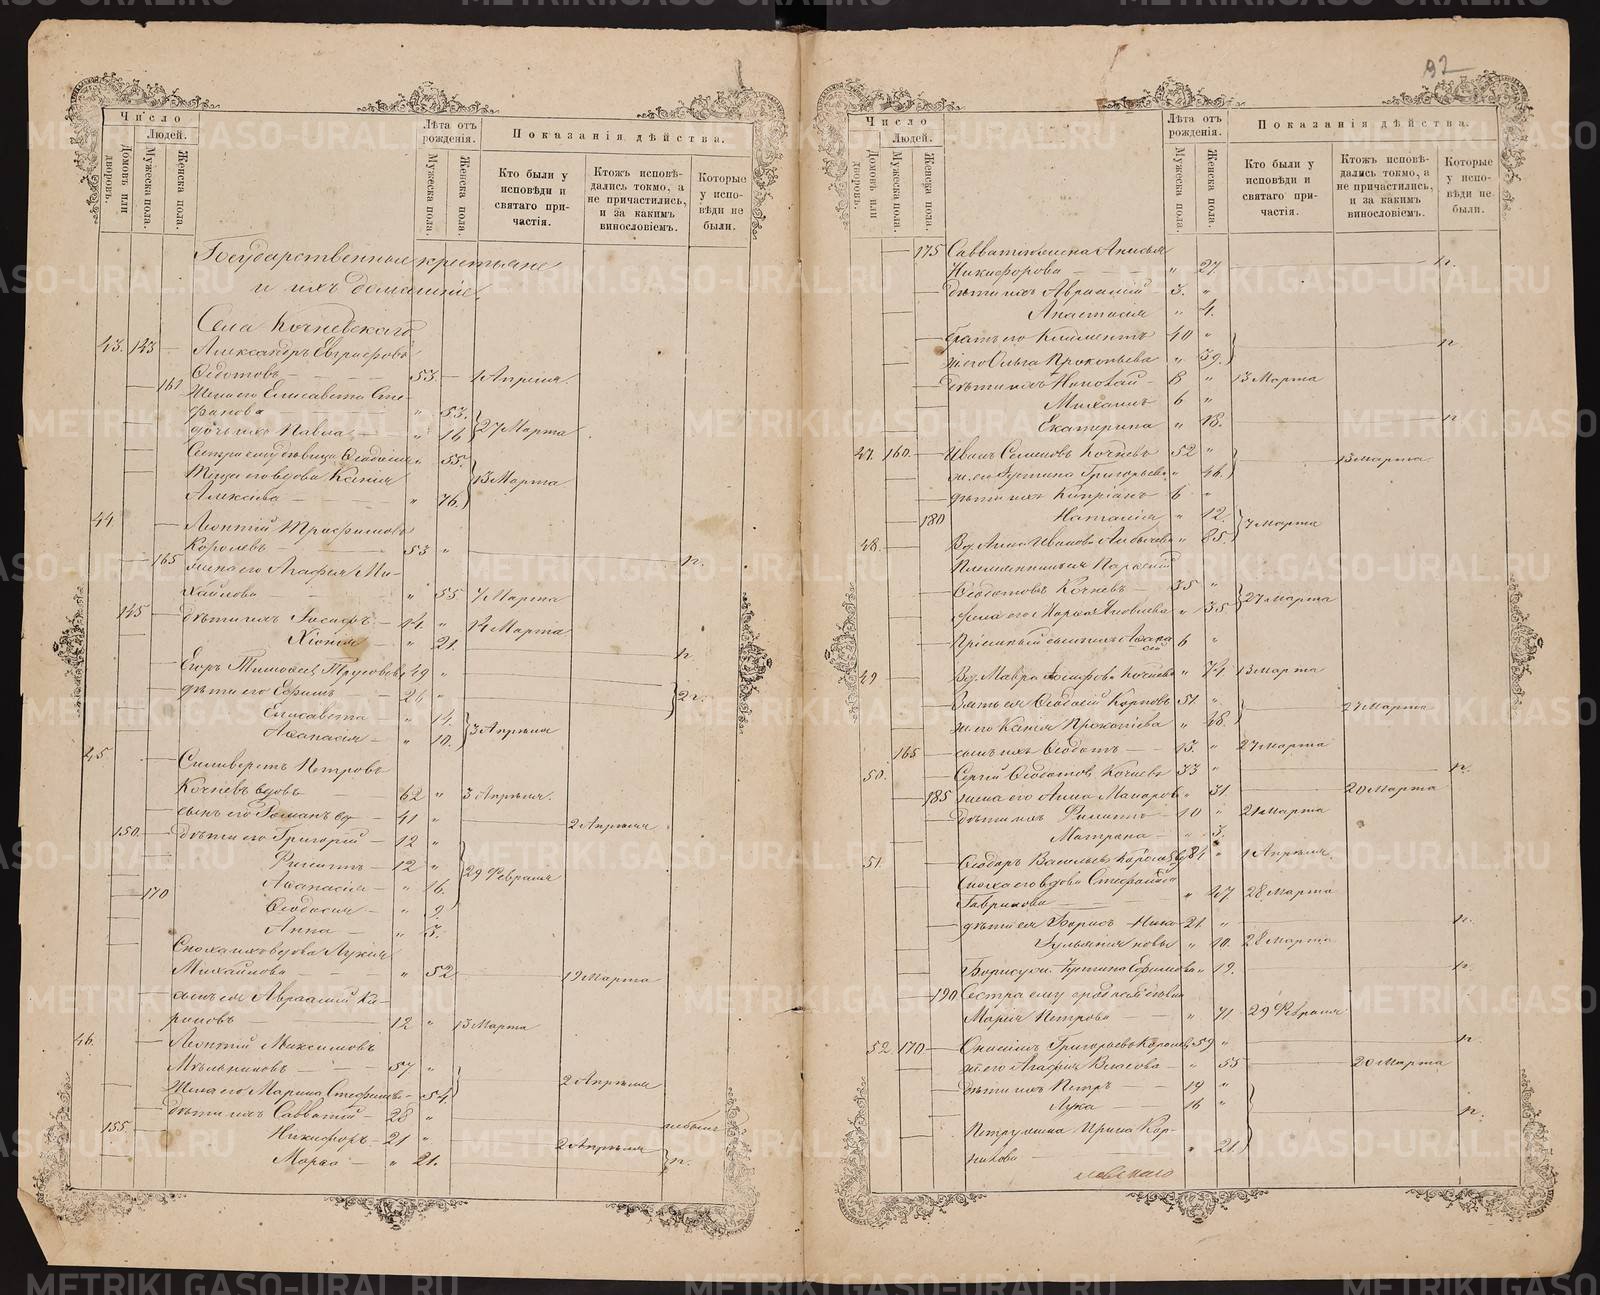 Число
Людей.
Домовъ или дворовъ.
Мужеска пола.
Женска пола.
Лѣта отъ рожденія.
Мужеска пола.
Женска пола.
Показанія дѣйства.
Кто были у исповѣди и святаго причастія.
Ктожъ исповѣдались токмо, а не причастились, и за какимъ винословіемъ.
Которые у исповѣди не были.
Государственные крестьяне
и ихъ домашніе.
Села Кочневскаго
43. 143 Александръ Евграфовъ
Ѳедотовъ 53. 1 Апрѣля.
161 Жена его Елисавета Сте-
фанова " 53.
дочь ихъ Павла " 16 27 Марта
Сестра ему дѣвица Ѳеодосія " 55.
Теща его вдова Ксенія 13 Марта
Алексѣева " 76.
44 Леонтій Трофимовъ
Королевъ 53 " н.
165 жена его Агафья Ми-
хайлова " 55 7 Марта
145 дѣти ихъ Іосифъ 14. " 14 Марта
Хіонія " 21. н.
Егоръ Тимоѳеевъ Трусовъ 49 "
дѣти его Ефимъ 24 " н.
Елисавета " 14.
Аѳанасія " 10. 3 Апрѣля
45 Силиверстъ Петровъ
Кочневъ вдовъ 62 " 3 Апрѣля.
сынъ его Романъ вд 41 " 2 Апрѣля
150. дѣти его Григорій 12 "
Филиппъ 12 "
170 Аѳанасія " 16. 29 Февраля
Ѳеодосія " 9.
Анна " 3.
Сноха ихъ вдова Лукія
Михайлова " 52 19 Марта
сынъ ея Авраамій Ка-
рповъ 12 " 13 Марта
46. Леонтій Максимовъ
Мѣльниковъ 57 "
Жена его Марина Стефанова " 54. 2 Апрѣля
дѣти ихъ Савватій 28 "
155 Никифоръ 21 " 2 Апрѣля
Марѳа " 21. н.
92
Число
Людей.
Домовъ или дворовъ.
Мужеска пола.
Женска пола.
Лѣта отъ рожденія.
Мужеска пола.
Женска пола.
Показанія дѣйства.
Кто были у исповѣди и святаго причастія.
Ктожъ исповѣдались токмо, а не причастились, и за какимъ винословіемъ.
Которые у исповѣди не были.
175 Савватія жена Анисья
Никифорова " 27. н.
дѣти ихъ Авраамій 3. "
Анастасія " 4.
братъ его Климентъ 40 "
ж. его Ольга Прокопьева " 39. н.
дѣти ихъ Николай 8 " 13 Марта
Михаилъ 6 "
Екатерина " 18. н.
47. 160. Иванъ Семеновъ Кочневъ 52 " 13 Марта
ж. его Іустина Григорьева " 46.
дѣти ихъ Кипріанъ 6 "
180 Наталія " 12. 7 Марта
48. Вд. Анна Иванова " 85.
Племянникъ
Ѳеодотовъ Кочневъ 35 "
жена его Марѳа Яковлева " 35 27 Марта
Пріемный сынъ ихъ 6 "
49 Вд. Мавра Кочнева " 74. 13 Марта
Зять ея Ѳеодосій Карповъ 51 " 27 Марта
ж. его Ксенія Прокопіева " 48.
165 сынъ ихъ Ѳеодотъ 13. " 27 Марта
50. Сергій Ѳеодотовъ Кочневъ 33 " н.
185 жена его Анна Макарова " 31. 20 Марта
дѣти ихъ Филиппъ 10 " 21 Марта
Матрона " 3.
51. Ѳеодоръ Васильевъ Королевъ 84 " 1 Апрѣля.
Сноха его вдова Стефанида
Гаврилова " 47 28 Марта
дѣти ея Борисъ 21. " н.
Іульянія " 10. 28 Марта
Борису ж. Іустина Ефимова " 19. н.
190 Сестра ему
Марія Петрова " 71 29 Февраля
52. 170 Онисимъ Григорьевъ Королевъ 59 " н.
ж. его Агафія Власова " 55 20 Марта
дѣти ихъ Петръ 19 "
Лука 16 " н.
Петру жена Ирина Кор-
нилова " 21.